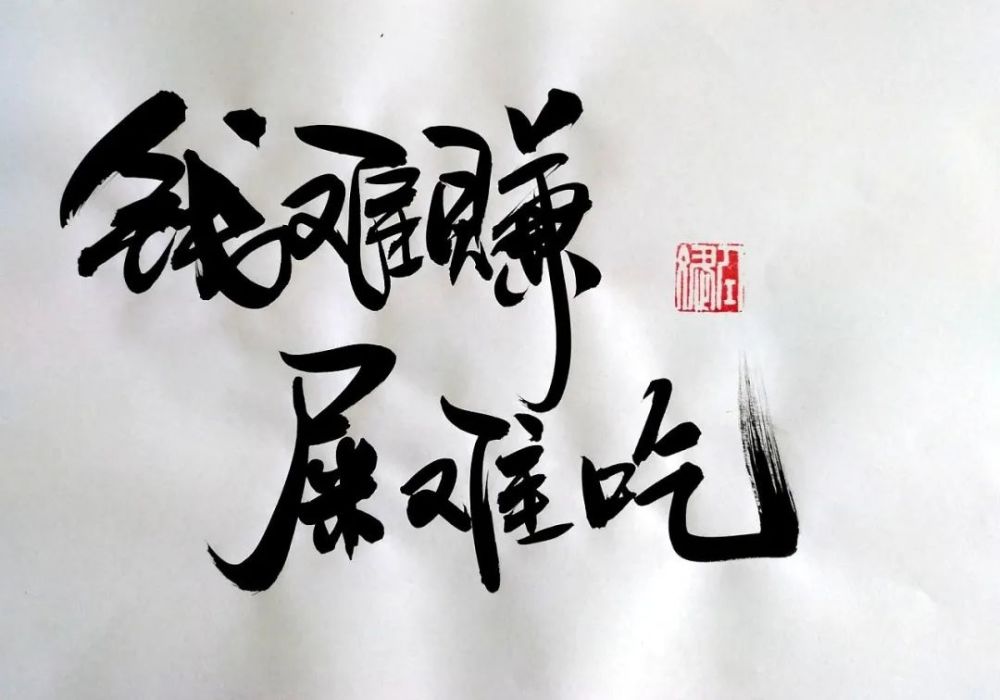 钱难赚
屎难吃